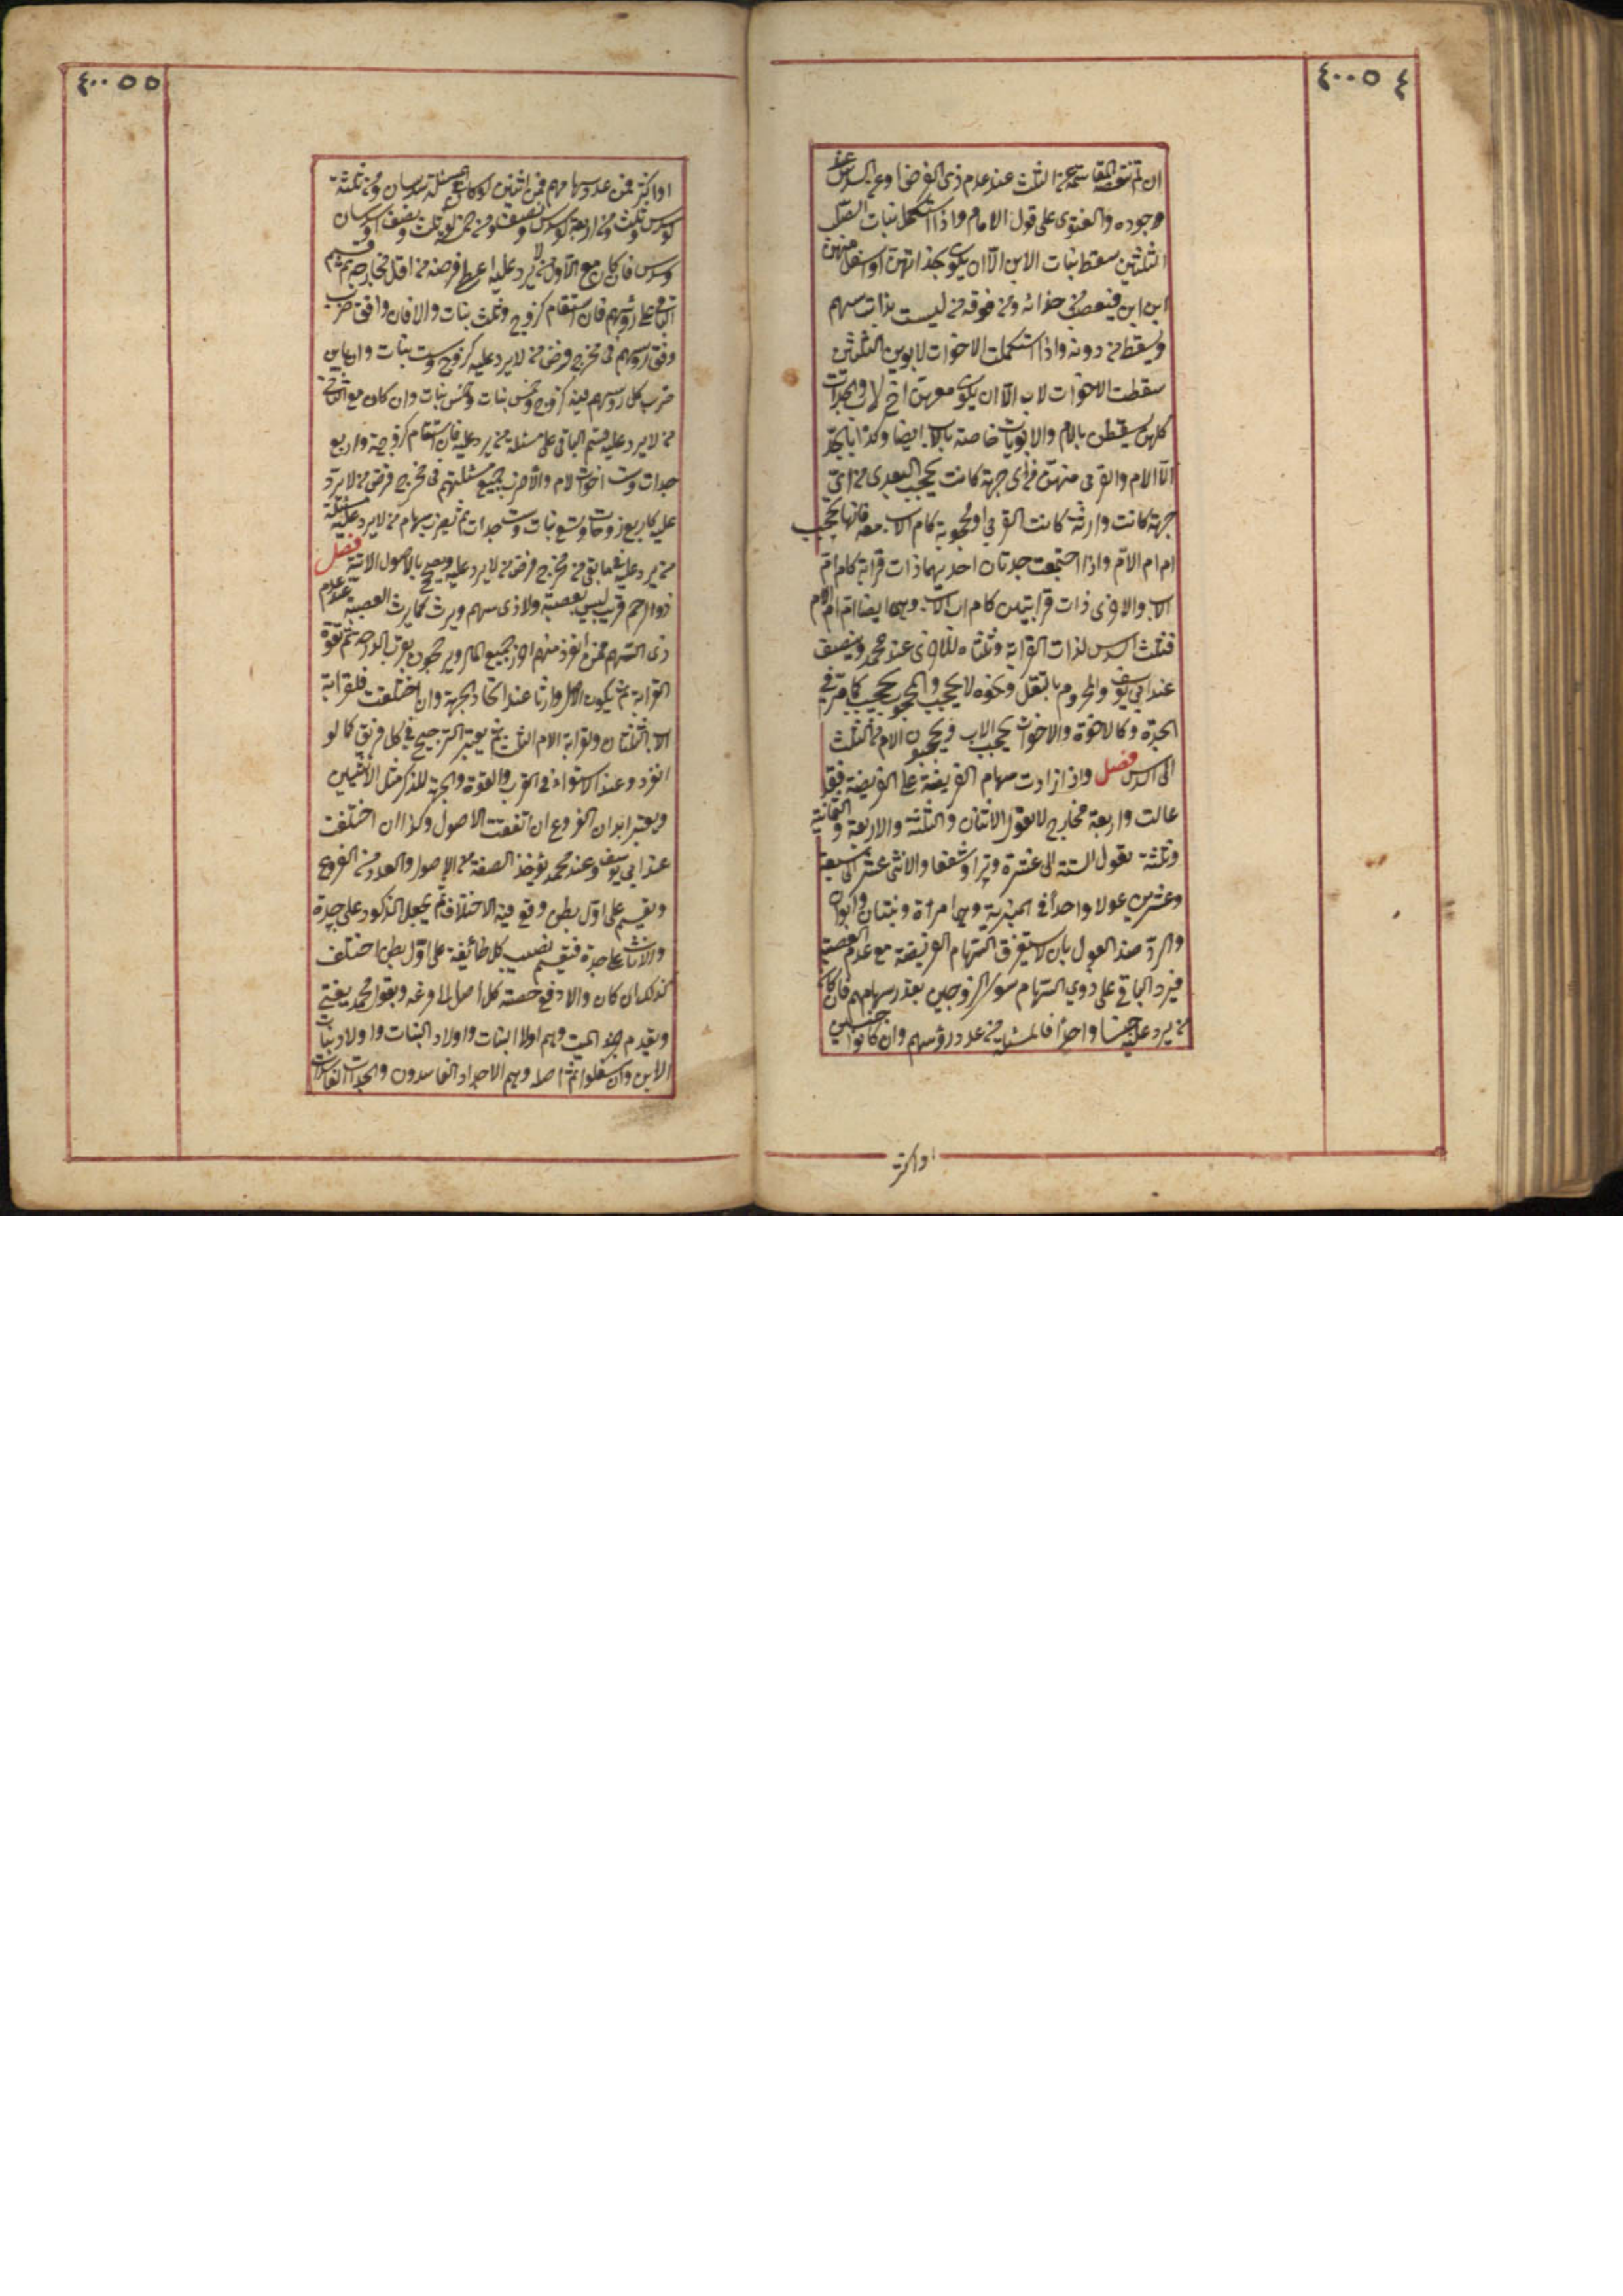 ٤٠٠٥٤
ان لم تنقصه المقاسمة عن الثلث عند عدم ذى الفرض او عن السدس عند
وجوده والفتوى على قول الامام واذا استكمل بنات الصلب
الثلثين سقط بنات الابن الا ان يكون بحذائهن او اسفل منهن
ابن ابن فيعصب من حذائه ومن فوقه من ليست بذات سهم
ويسقط من دونه واذا استكملت الاخوات لابوين الثلثين
سقطت الاخوات لاب الا ان يكون معهن اخ لاب والجدات
كلهن يسقطن بالام والابويات خاصة بالاب ايضا وكذا بالجد
الا ام الاب والقربى منهن من اى جهة كانت تحجب البعدى من اى
جهة كانت وارثة كانت القربى او محجوبة كام الاب معه فانها تحجب
ام ام الام واذا اجتمعت جدتان احديهما ذات قرابة كام ام
الاب والاخرى ذات قرابتين كام اب الاب وهى ايضا ام ام الام
فثلث السدس لذات القرابة وثلثاه للاخرى عند محمد وينصف
عند ابي يوسف والمحروم بالقتل ونحوه لا يحجب والمحجوب يحجب كما مر في
الجدة وكالاخوة والاخوات يحجبهم الاب ويحجبون الام من الثلث
الى السدس فصل واذا زادت سهام الفريضة على الفريضة فقد
عالت واربعة مخارج لا تعول الاثنان والثلثة والاربعة والثمانية
وثلثة تعول الستة الى عشرة وترا وشفعا والاثنى عشر الى سبعة
وعشرين عولا واحدا في المنبرية وهى امرأة وبنتان وابوان
والرد ضد العول بان لا يستغرق السهام الفريضة مع عدم العصبة
فيرد الباقي على ذوي السهام سوى الزوجين بقدر سهامهم فان كان
من يرد عليه جنسا واحدا فالمسئلة من عدد رؤسهم وان كانوا جنسين
او اكثر
٤٠٠٥٥
او اكثر فمن عدد سهامهم فمن اثنين لو كان في المسئلة سدسان ومن ثلثة
لو سدس وثلث ومن اربعة لو سدس ونصف ومن خمسة لو ثلث ونصف او سدسان
وسدس فان كان مع الاول من لا يرد عليه اعطى فرضه من اقل مخارجه ثم قسم
الباقي على رؤسهم فان استقام كزوج وثلث بنات والا فان وافق ضرب
وفق رؤسهم فى مخرج فرض من لا يرد عليه كزوج وست بنات وان باين
ضرب كل رؤسهم فيه كزوج وخمس بنات وان كان مع الثاني
من لا يرد عليه قسم الباقي على مسئلة من يرد عليه فان استقام كزوجة واربع
جدات وست اخوات لام والا ضرب جميع مسئلتهم فى مخرج فرض من لا يرد
عليه كاربع زوجات وتسع بنات وست جدات ثم تضرب سهام من لا يرد عليه في مسئلة
من يرد عليه فيما بقى من مخرج فرض من لا يرد عليه ويصحح بالاصول الاتية فصل
ذو الرحم قريب ليس بعصبة ولا ذى سهم ويرث كما يرث العصبة عند عدم
ذى السهم فمن انفرد منهم احرز جميع المال ويرجحون بقرب الدرجة ثم بقوة
القرابة ثم بكون الاصل وارثا عند اتحاد الجهة وان اختلفت فلقرابة
الاب الثلثان ولقرابة الام الثلث ثم يعتبر الترجيح في كل فريق كما لو
انفرد وعند الاستواء فى القرب والقوة والجهة للذكر مثل الانثيين
ويعتبر ابدان الفروع ان اتفقت الاصول وكذا ان اختلفت
عند ابي يوسف وعند محمد تؤخذ الصفة من الاصول والعدد من الفروع
ويقسم على اول بطن وقع فيه الاختلاف ثم يجعل الذكور على حدة
والاناث على حدة فيقسم نصيب كل طائفة على اول بطن اختلف
كذلك ان كان والا دفع حصة كل اصل الى فرعه وبقول محمد يفتى
ويقدم جزء الميت وهم اولاد البنات واولاد بنات
الابن وان سفلوا ثم اصله وهم الاجداد الفاسدون والجدات الفاسدات